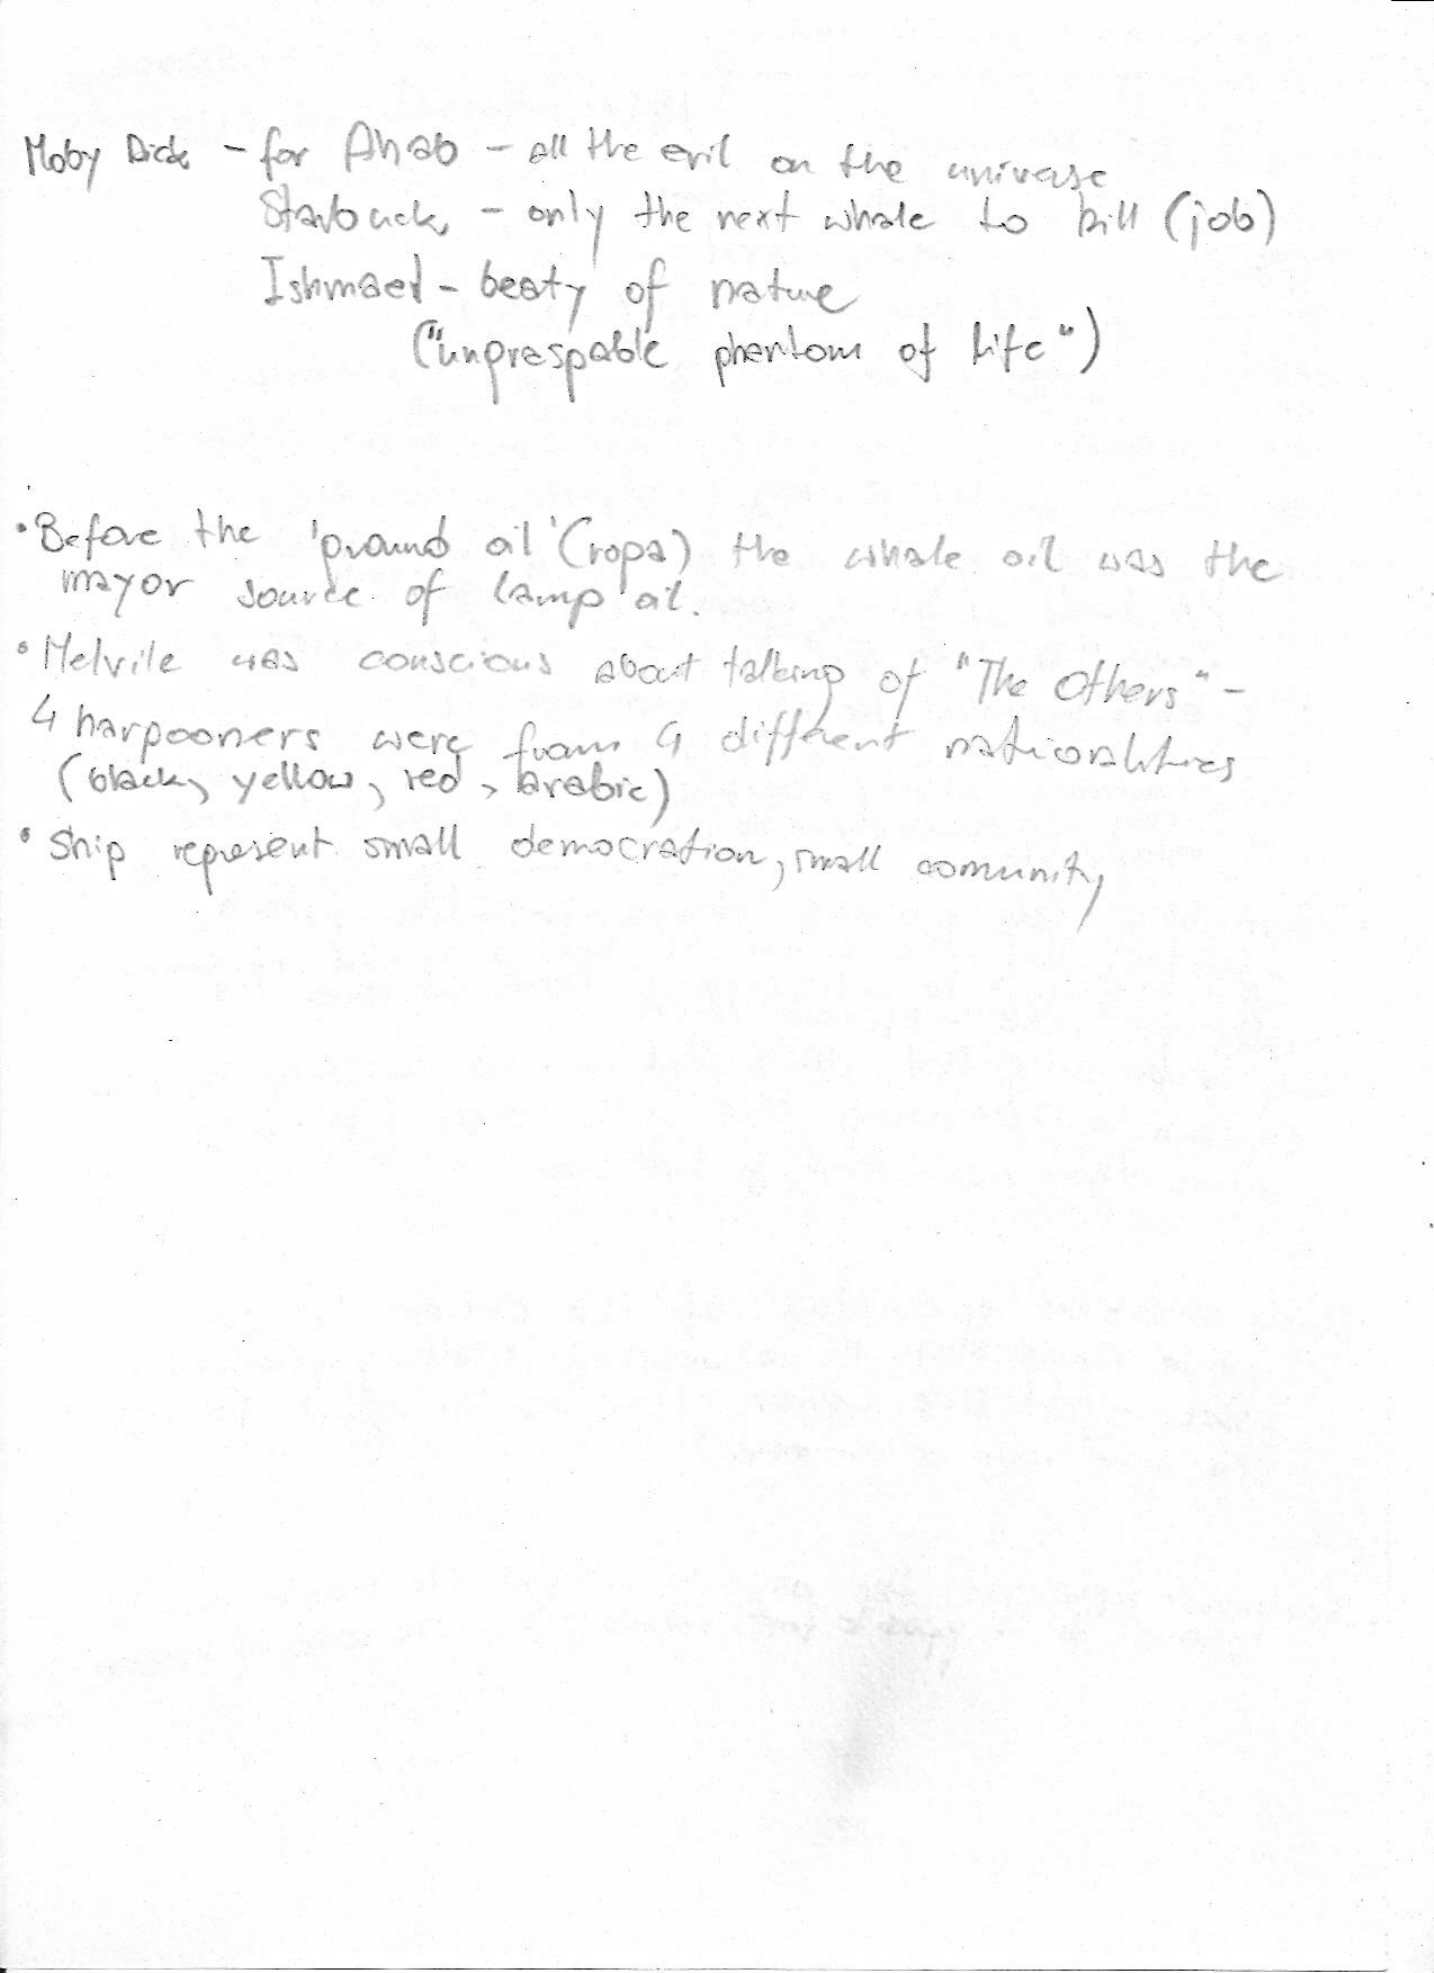 Moby Dick - for Ahab - all the evil on the universe
Starbuck - only the next whale to kill (job)
Ishmael - beaty of nature
("ungraspable phantom of life")
• Before the 'ground oil' (ropa) the whale oil was the
mayor source of lamp oil.
• Melvile was conscious about talking of "The Others" -
4 harpooners were from 4 different nationalities
(black, yellow, red, arabic)
• Ship represent small democration, small comunity